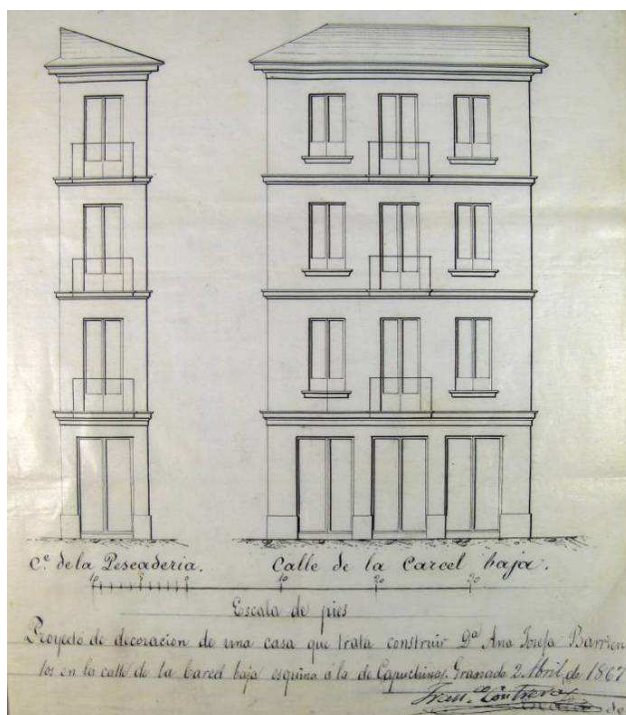 C.e de la Pescadería. Calle de la Carcel baja.
10 5 0 10 20 30
Escala de pies
Proyecto de decoracion de una casa que trata construir Dª Ana Josefa Barrien
tos en la calle de la Carcel baja esquina á la de Capuchinas. Granada 2 Abril de 1867
Contreras